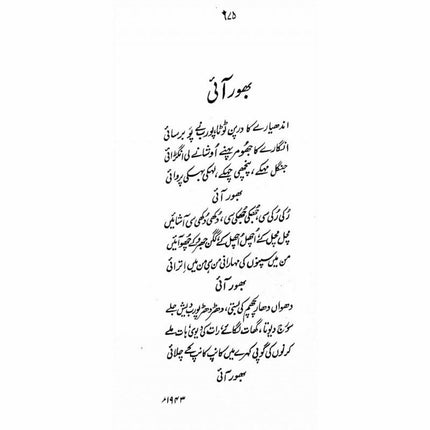 ۶۷۵
بھور آئی
اندھیارے کا درپن ٹوٹا، پورب نے پَو برسائی
انگارے کا جھومر پہنے اُوشا نے لی انگڑائی
جنگل مہکے، پنچھی چہکے، لہکی بہکی پروائی
بھور آئی
رُکی رُکی سی، جھکی جھکی سی، دُکھی دُکھی سی آشائیں
مچل مچل کے اُچھل اُچھل کے گگن جھروکے چھو آئیں
من میں سپنوں کی مہارانی من ہی من میں اِترائی
بھور آئی
دھواں دھار پچھم کی بستی، دھڑ دھڑ پورب دیش جلے
سورج دیوتا، گھات لگائے رات کی دیوی ہات ملے
کرنوں کی گوپی کہرے میں کانپ کانپ کے چلائی
بھور آئی
۱۹۴۳ء